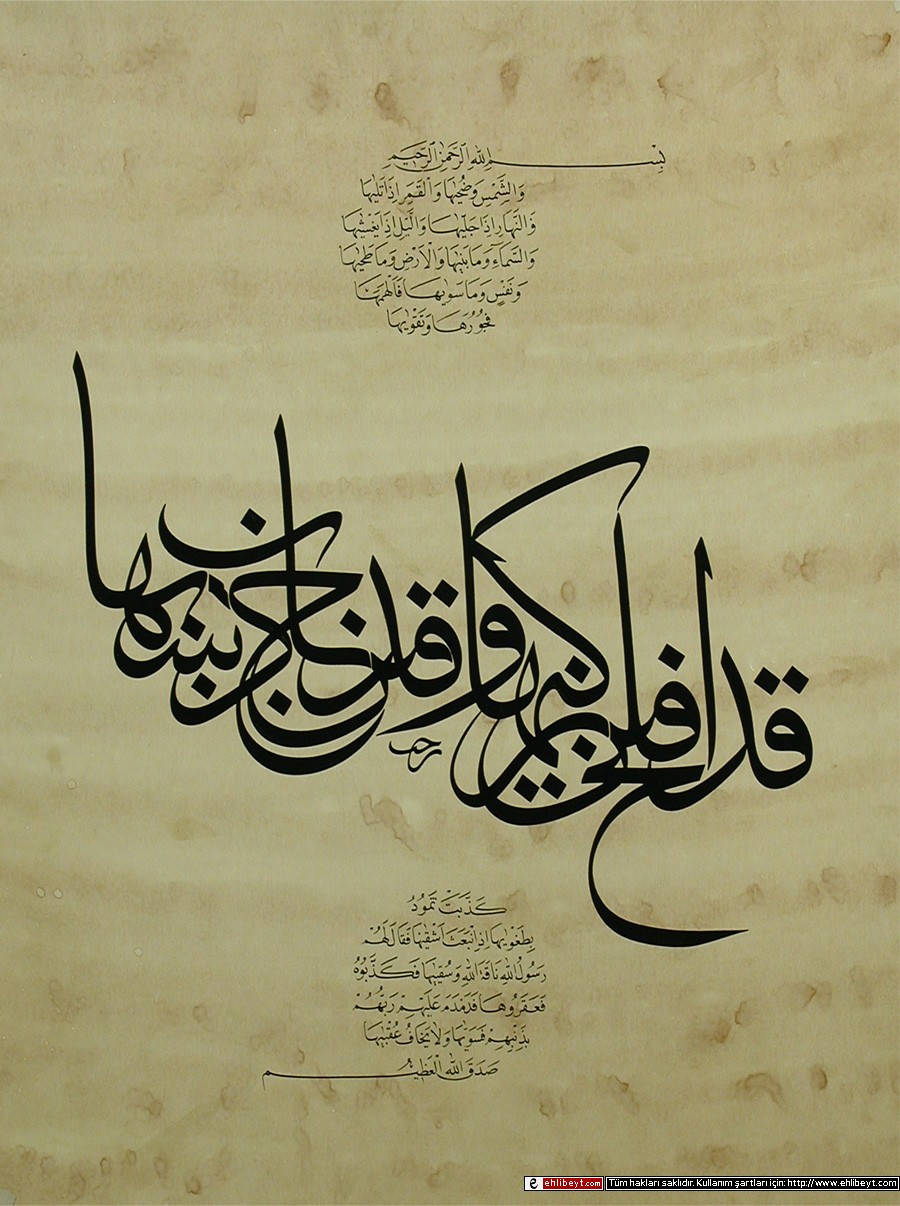 بِسْمِ اللهِ الرَّحْمٰنِ الرَّحِيمِ
وَالشَّمْسِ وَضُحٰيهَا وَالْقَمَرِ اِذَا تَلٰيهَا
وَالنَّهَارِ اِذَا جَلّٰيهَا وَالَّيْلِ اِذَا يَغْشٰيهَا
وَالسَّمَآءِ وَمَا بَنٰيهَا وَالْاَرْضِ وَمَا طَحٰيهَا
وَنَفْسٍ وَمَا سَوّٰيهَا فَاَلْهَمَهَا
فُجُورَهَا وَتَقْوٰيهَا
قد افلح من زكيها وقد خاب من دسيها
كَذَّبَتْ ثَمُودُ
بِطَغْوٰيهَا اِذِ انْبَعَثَ اَشْقٰيهَا فَقَالَ لَهُمْ
رَسُولُ اللهِ نَاقَةَ اللهِ وَسُقْيٰهَا فَكَذَّبُوهُ
فَعَقَرُوهَا فَدَمْدَمَ عَلَيْهِمْ رَبُّهُمْ
بِذَنْبِهِمْ فَسَوّٰيهَا وَلَا يَخَافُ عُقْبٰيهَا
صَدَقَ اللهُ الْعَظِيمُ
ehlibeyt.com Tüm hakları saklıdır. Kullanım şartları için: http://www.ehlibeyt.com